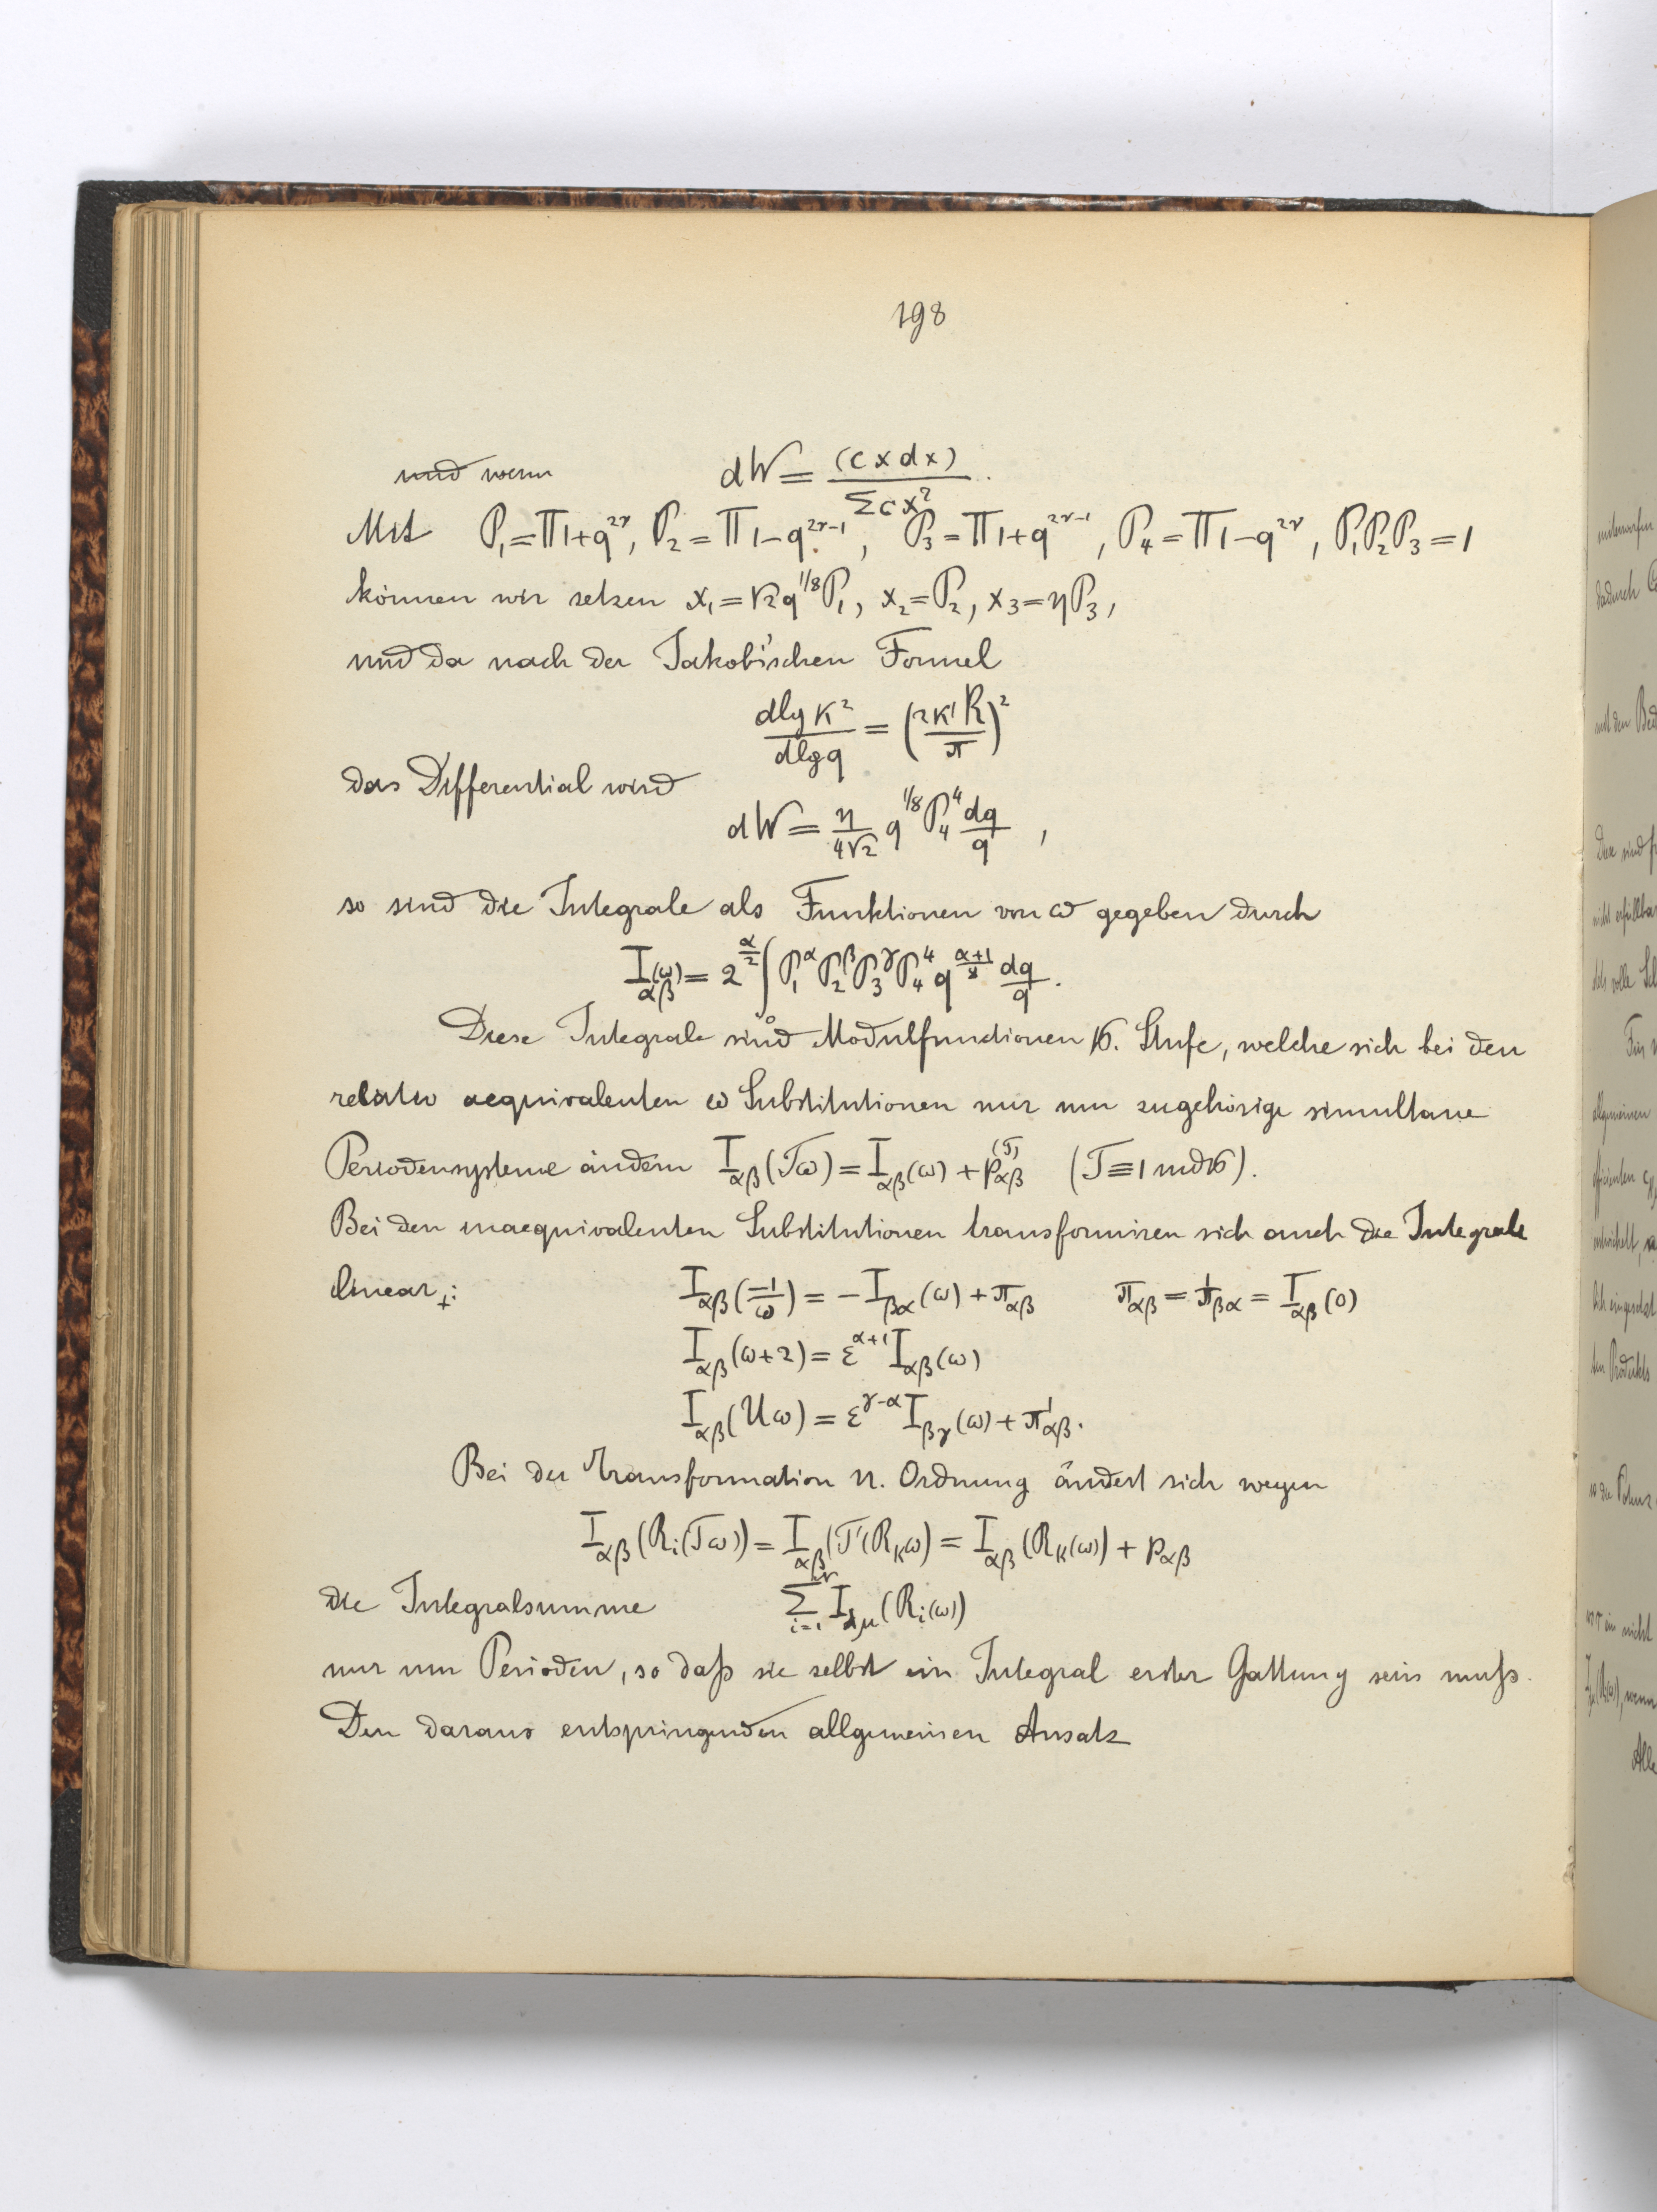 198
und wenn dW = (cxdx)/Σcx²
Mit P₁=Π1+q²ᵛ, P₂=Π1−q²ᵛ⁻¹, P₃=Π1+q²ᵛ⁻¹, P₄=Π1−q²ᵛ, P₁P₂P₃=1
können wir setzen x₁=√2q^{1/8}P₁, x₂=P₂, x₃=ηP₃,
und da nach der Jakobi'schen Formel
dlg κ²/dlg q = (2κ'K/π)²
das Differential wird
dW = η/4√2 q^{1/8} P₄⁴ dq/q ,
so sind die Integrale als Funktionen von ω gegeben durch
I_{αβ}(ω) = 2^{α/2} ∫₀ P₁^α P₂^β P₃^γ P₄⁴ q^{(α+1)/8} dq/q.
Diese Integrale sind Modulfunctionen 16. Stufe, welche sich bei den
relativ aequivalenten ω Substitutionen nur um zugehörige simultane
Periodensysteme ändern I_{αβ}(Tω) = I_{αβ}(ω) + p_{αβ}^{(T)} (T≡1 mod 16).
Bei den inaequivalenten Substitutionen transformiren sich auch die Integrale
linear: I_{αβ}(−1/ω) = −I_{βα}(ω) + π_{αβ} π_{αβ} = π_{βα} = I_{αβ}(0)
I_{αβ}(ω+2) = ε^{α+1} I_{αβ}(ω)
I_{αβ}(Uω) = ε^{γ−α} I_{βγ}(ω) + π'_{αβ}.
Bei der Transformation n. Ordnung ändert sich wegen
I_{αβ}(R_i(Tω)) = I_{αβ}(T'(R_kω) = I_{αβ}(R_k(ω)) + p_{αβ}
die Integralsumme Σ_{i=1} I_{λμ}(R_i(ω))
nur um Perioden, so daß sie selbst ein Integral erster Gattung sein muß.
Den daraus entspringenden allgemeinen Ansatz